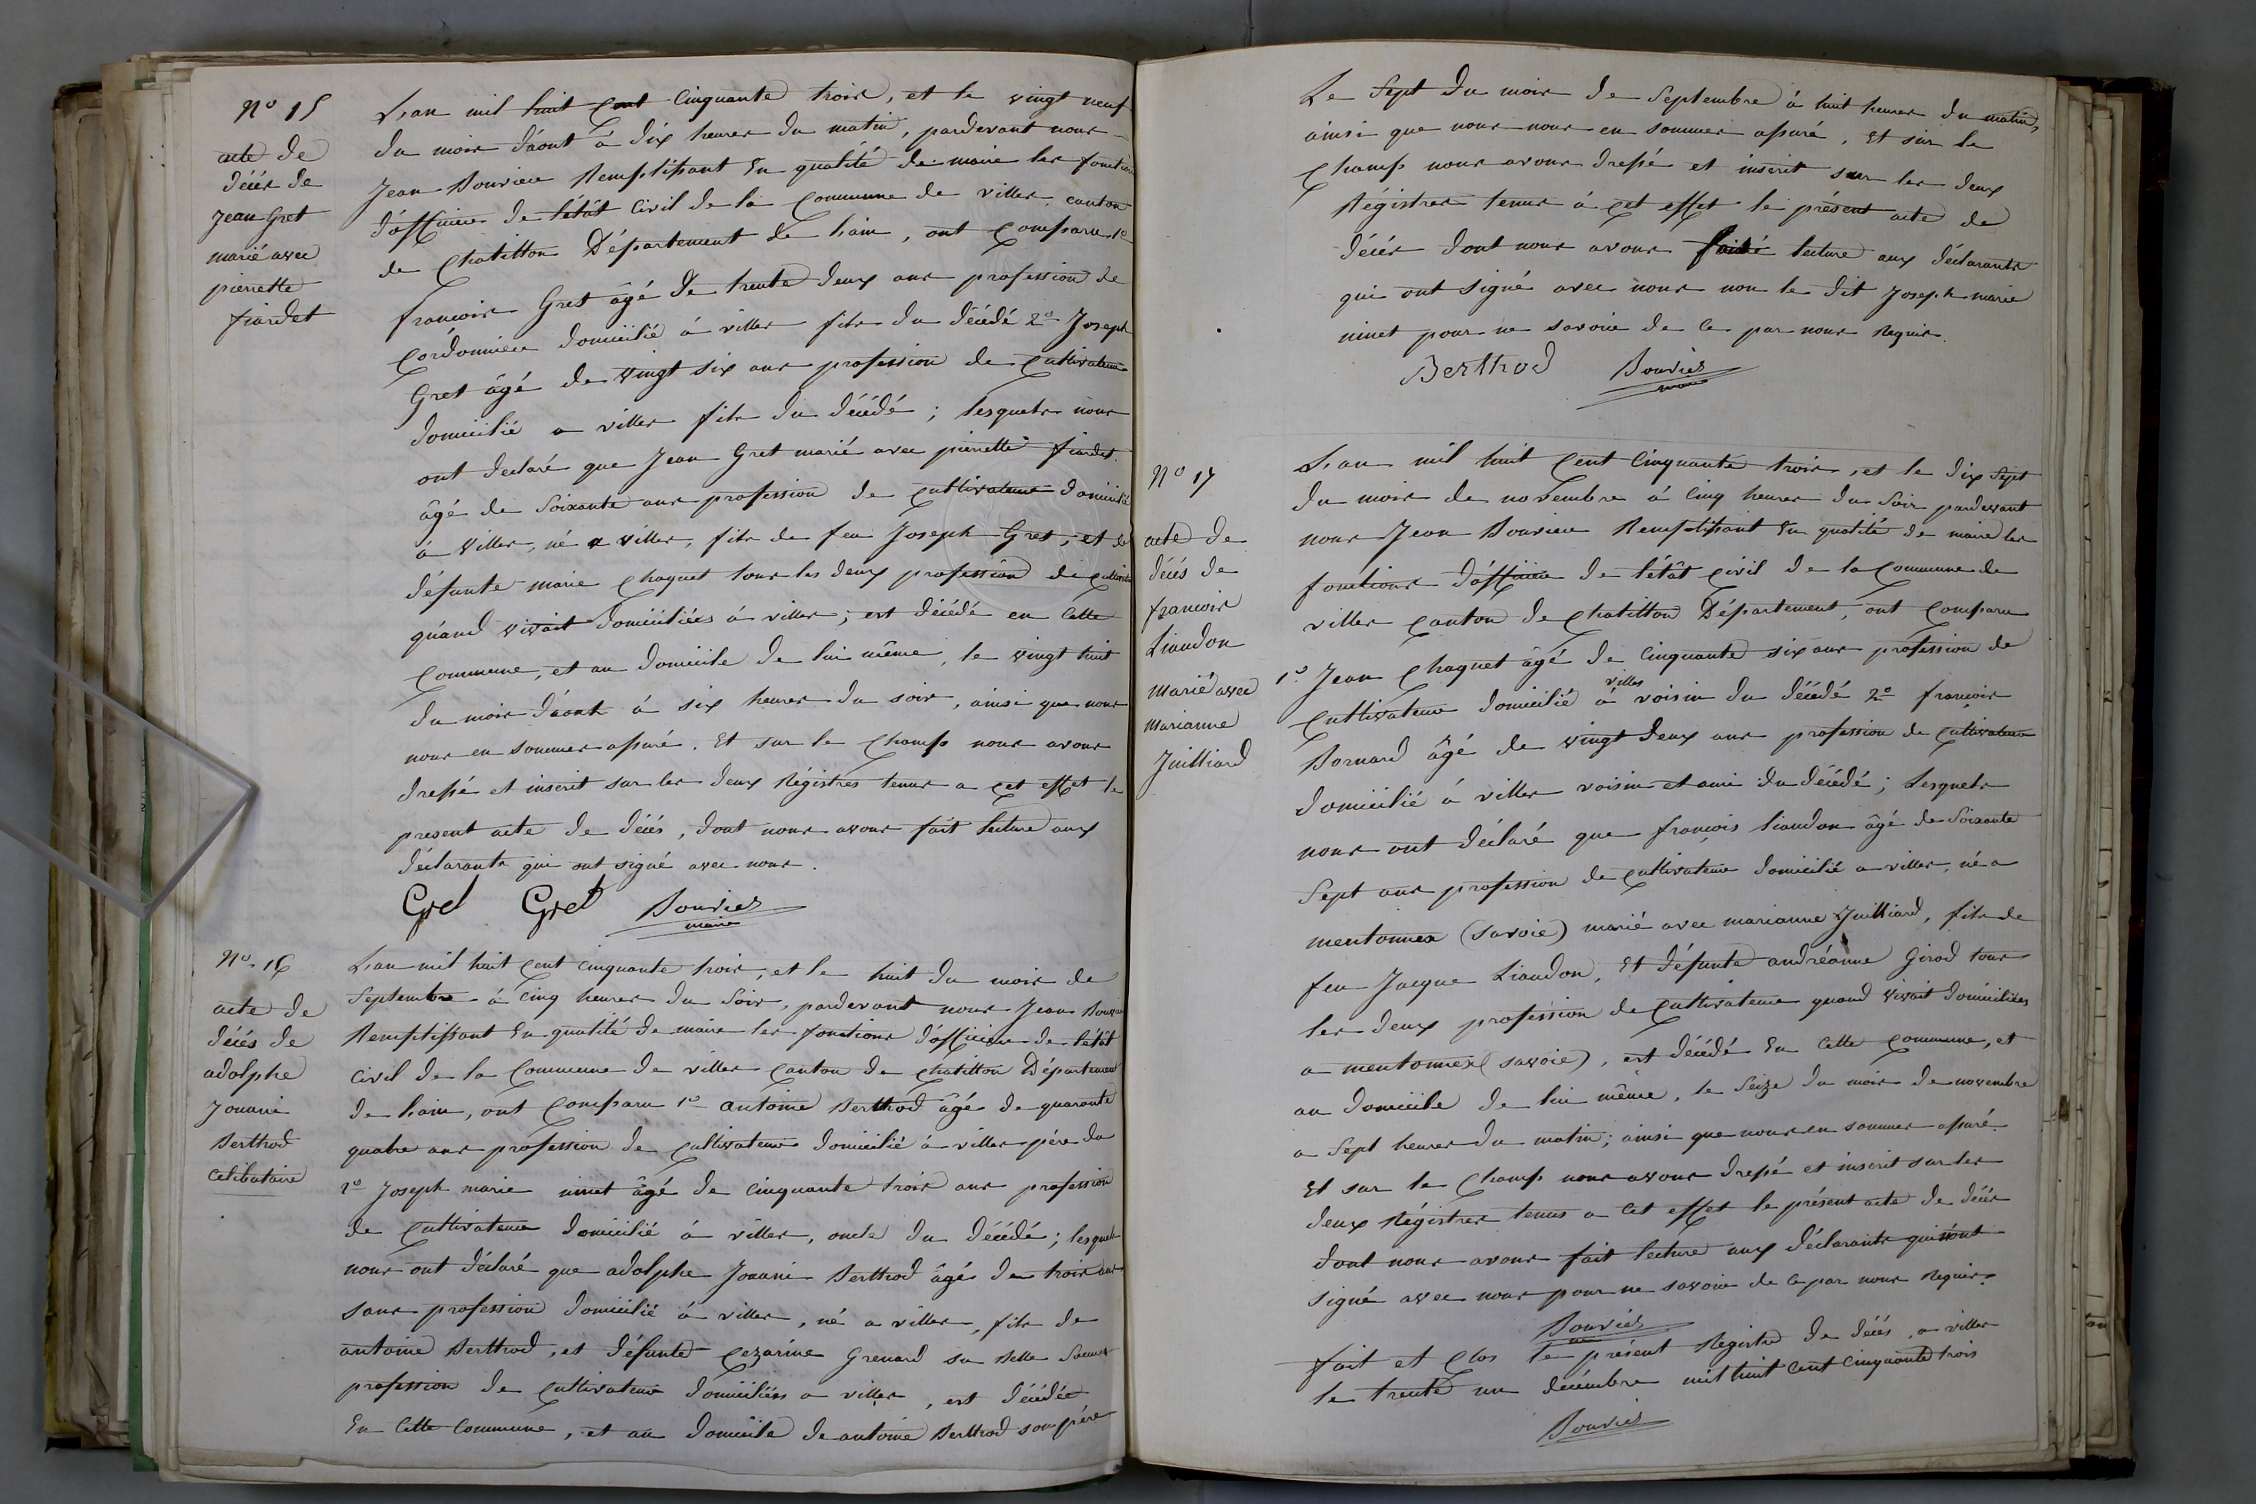 N° 15
acte de
décés de
Jean Gret
marié avec
pierrette
fiardet
L'an mil huit Cent Cinquante trois, et le vingt neuf
du mois d'áout à dix heures du matin, pardevant nous
Jean Bouvier Remplissant En qualité de maire les fonctions
d'officier de l'état Civil de la Commune de villes, canton
de Chatillon Département de l'ain, ont Comparu 1°
francois Gret âgé de trente deux ans profession de
Cordonnier domicilié à villes fils du décédé 2° Joseph
Gret âgé de vingt six ans profession de Cultivateur
domicilié a villes fils du décédé ; lesquels nous
ont declaré que Jean Gret marié avec pierrette fiardet
âgé de Soixante ans profession de cultivateur domicilié
à Villes, né a villes, fils de feu Joseph Gret, et de
défunte marie Chaquet tous les deux profession de Cultivateur
quand vivait domiciliées à villes ; est décédé en Cette
Commune, et au domicile de lui même, le vingt huit
du mois d'áout à six heures du soir, ainsi que nous
nous en sommes assuré. Et sur le Champ nous avons
dressé et inscrit sur les deux Régistres tenus a cet effet le
present acte de décés, dont nous avons fait lecture aux
déclarants qui ont signé avec nous.
Gret Gret Bouvier
maire
N° 16
acte de
décés de
adolphe
Jouani
Berthod
Celibataire
L'an mil huit Cent Cinquante trois, et le huit du mois de
Septembre à Cinq heures du Soir, pardevant nous Jean Bouvier
Remplissant En qualité de maire les fonctions d'officier de l'état
Civil de la Commune de villes Canton de Chatillon Département
de l'ain, ont Comparu 1° antoine Berthod âgé de quarante
quatre ans profession de Cultivateur domicilié à villes pére du
2° Joseph marie ninet âgé de Cinquante trois ans profession
de Cultivateur domicilié à villes, oncle du décédé ; lesquels
nous ont déclaré que adolphe Jouani Berthod âgé de trois ans
sans profession domicilié à villes, né a villes, fils de
antoine Berthod, et défunte Cezarine Grenard sa Belle Soeur
profession de Cultivateur domiciliées a villes, est décédée
En Cette Commune, et au domicile de antoine Berthod son pére
Le Sept du mois de Septembre à huit heures du matin,
ainsi que nous nous en sommes assuré, Et sur le
Champ nous avons dressé et inscrit sur les deux
Régistres tenus à Cet effet le présent acte de
décés dont nous avons lecture aux déclarants
qui ont signé avec nous non le dit Joseph marie
ninet pour ne savoir de Ce par nous Requis.
Berthod Bouvier
maire
N° 17
acte de
décés de
francois
Liaudon
Marié avec
Marianne
Juilliard
L'an mil huit Cent Cinquante trois, et le dix Sept
du mois de novembre à Cinq heures du Soir pardevant
nous Jean Bouvier Remplissant En qualité de maire les
fonctions d'officier de l'état Civil de la Commune de
villes Canton de Chatillon Département, ont Comparu
1° Jean Chaquet âgé de Cinquante six ans profession de
Cultivateur domicilié à villes voisin du décédé 2° françois
Bornard âgé de vingt deux ans profession de Cultivateur
domicilié à villes voisin et ami du décédé ; Lesquels
nous ont déclaré que françois liaudon âgé de Soixante
Sept ans profession de Cultivateur domicilié a villes, né a
mentonnex (savoie) marié avec marianne Juilliard, fils de
feu Jacque Liaudon, Et défunte andréanne Girod tous
les deux profession de Cultivateur quand vivait domiciliées
a mentonnex (savoie), est décédé En Cette Commune, et
au domicile de lui même, le Seize du mois de novembre
a Sept heures du matin ; ainsi que nous en sommes assuré.
Et sur le Champ nous avons dressé et inscrit sur les
deux Régistres tenus a Cet effet le présent acte de décés
dont nous avons fait lecture aux déclarants qui n'ont
signé avec nous pour ne savoir de Ce par nous Requis.
Bouvier
fait et Clos le présent Registre de décés, a villes
le trente un décembre mil huit Cent Cinquante trois
Bouvier